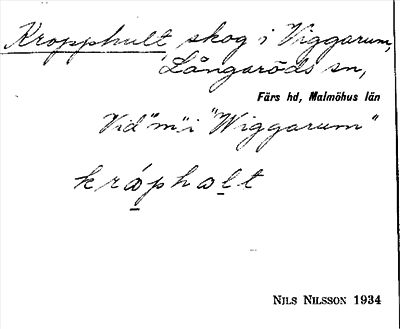 Kropphult skog i Viggarum,
Långaröds sn,
Färs hd, Malmöhus län
Vid "m" i "Wiggarum"
kráphalt
NILS NILSSON 1934